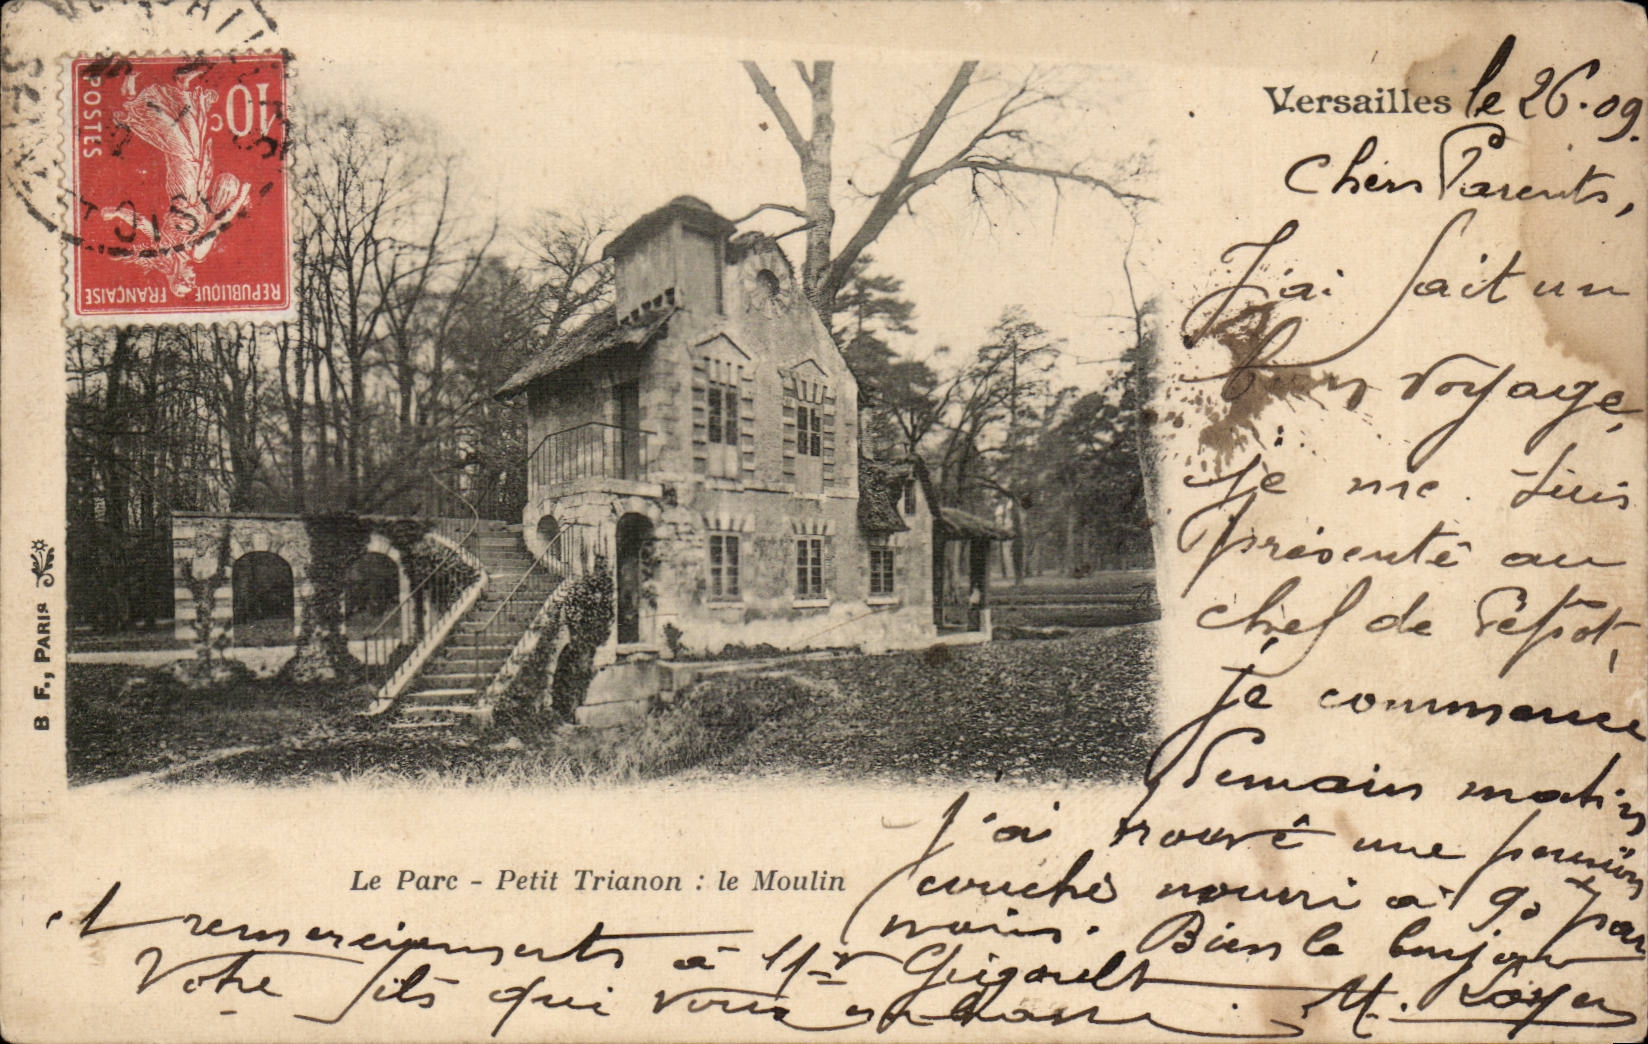 10c
POSTES
REPUBLIQUE FRANÇAISE
Versailles le 26.09.
Chers Parents,
J'ai fait un
bon voyage,
je me suis
présenté au
chef de Dépôt,
je commence
Demain matin
j'ai trouvé une pension
couché nourri à 90 par
mois. Bien le bonjour
et remerciements à Mr Gigault M. Loyer
Votre fils qui vous embrasse
Le Parc - Petit Trianon : le Moulin
B F., PARIS